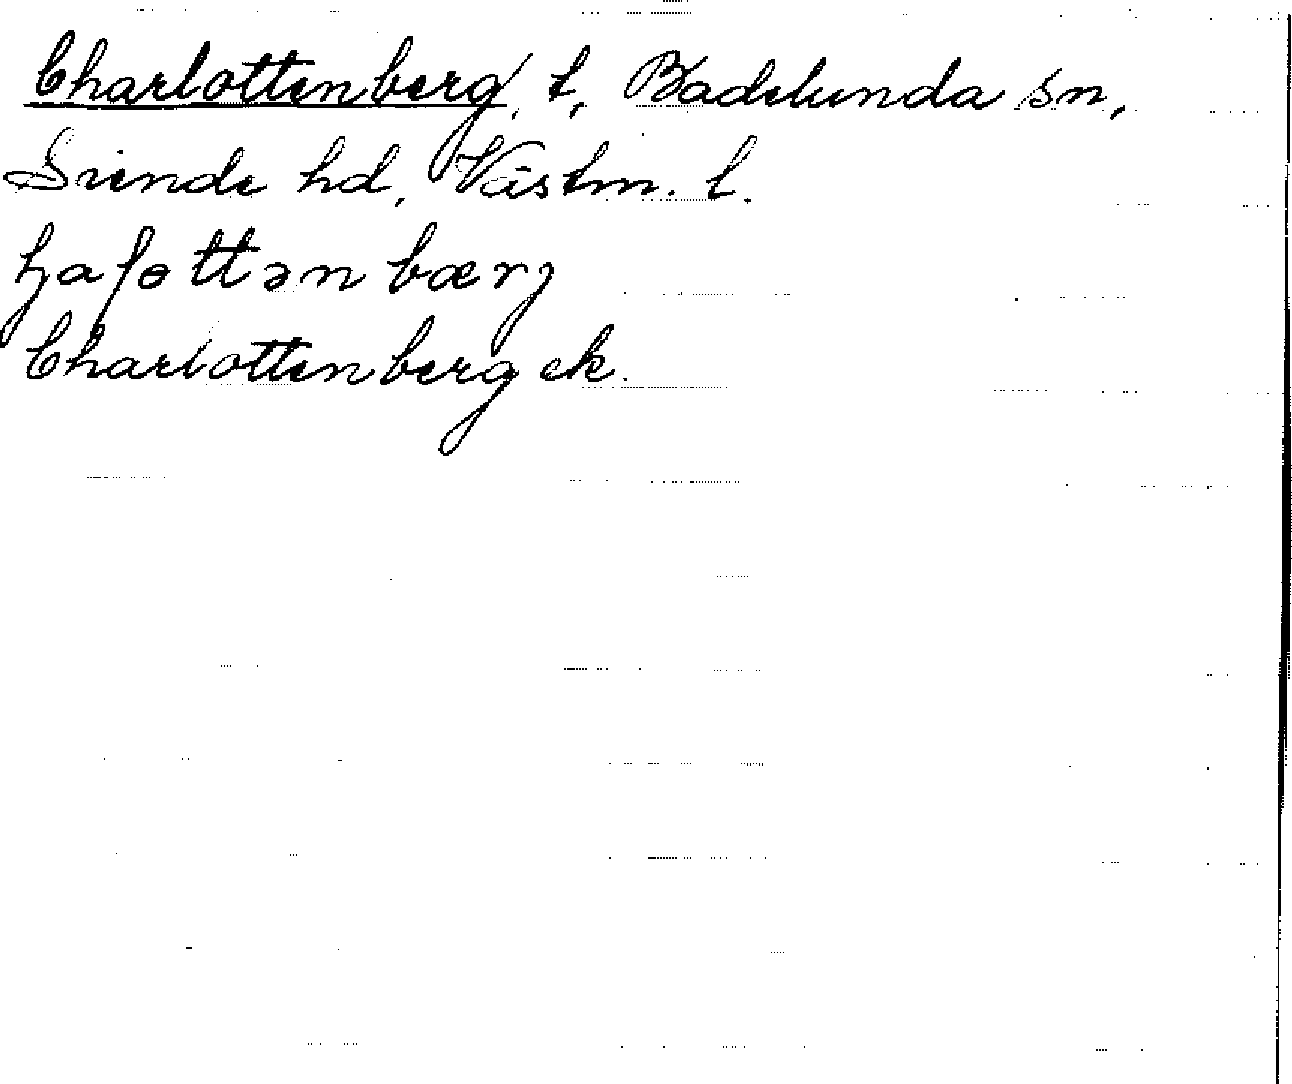 Charlottenberg, t, Badelunda sn,
Siende hd, Västm. l.
Charlottenberg ek.